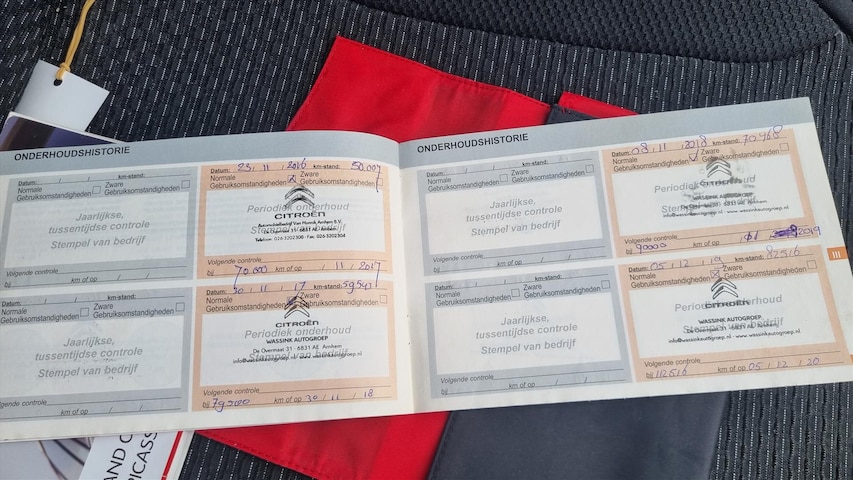 ONDERHOUDSHISTORIE
Datum: / / km-stand:
Normale Zware
Gebruiksomstandigheden Gebruiksomstandigheden
Jaarlijkse,
tussentijdse controle
Stempel van bedrijf
Volgende controle
bij km of op / /
Datum: 23 / 11 / 2016 km-stand: 50.007
Normale Zware
Gebruiksomstandigheden Gebruiksomstandigheden
Periodiek onderhoud
CITROËN
Automobielbedrijf Van Munnik Arnhem B.V.
De Overmaat 31 - 6831 AE Arnhem
Telefoon: 026-3202308 - Fax: 026-3202304
Stempel van bedrijf
Volgende controle
bij 70.000 km of op / 11 / 2017
Datum: / / km-stand:
Normale Zware
Gebruiksomstandigheden Gebruiksomstandigheden
Jaarlijkse,
tussentijdse controle
Stempel van bedrijf
Volgende controle
bij km of op / /
30 / 11 / 17 km-stand: 59.592
Normale Zware
Gebruiksomstandigheden Gebruiksomstandigheden
CITROËN
Periodiek onderhoud
WASSINK AUTOGROEP
De Overmaat 31 - 6831 AE Arnhem
Stempel van bedrijf
Volgende controle
bij 79500 km of op 30 / 11 / 18
ONDERHOUDSHISTORIE
Datum: / / km-stand:
Normale Zware
Gebruiksomstandigheden Gebruiksomstandigheden
Jaarlijkse,
tussentijdse controle
Stempel van bedrijf
Volgende controle
bij km of op / /
Datum: 08 / 11 / 2018 km-stand: 70.468
Normale Zware
Gebruiksomstandigheden Gebruiksomstandigheden
Periodiek onderhoud
Stempel van bedrijf
Volgende controle
bij 90000 km of op 2019
Datum: / / km-stand:
Normale Zware
Gebruiksomstandigheden Gebruiksomstandigheden
Jaarlijkse,
tussentijdse controle
Stempel van bedrijf
Volgende controle
bij km of op / /
Datum: 05 / 12 / 19 km-stand: 82516
Normale Zware
Gebruiksomstandigheden Gebruiksomstandigheden
CITROËN
Periodiek onderhoud
WASSINK AUTOGROEP
Stempel van bedrijf
Volgende controle
bij 112516 km of op 05 / 12 / 20
III
AND C
PICASS